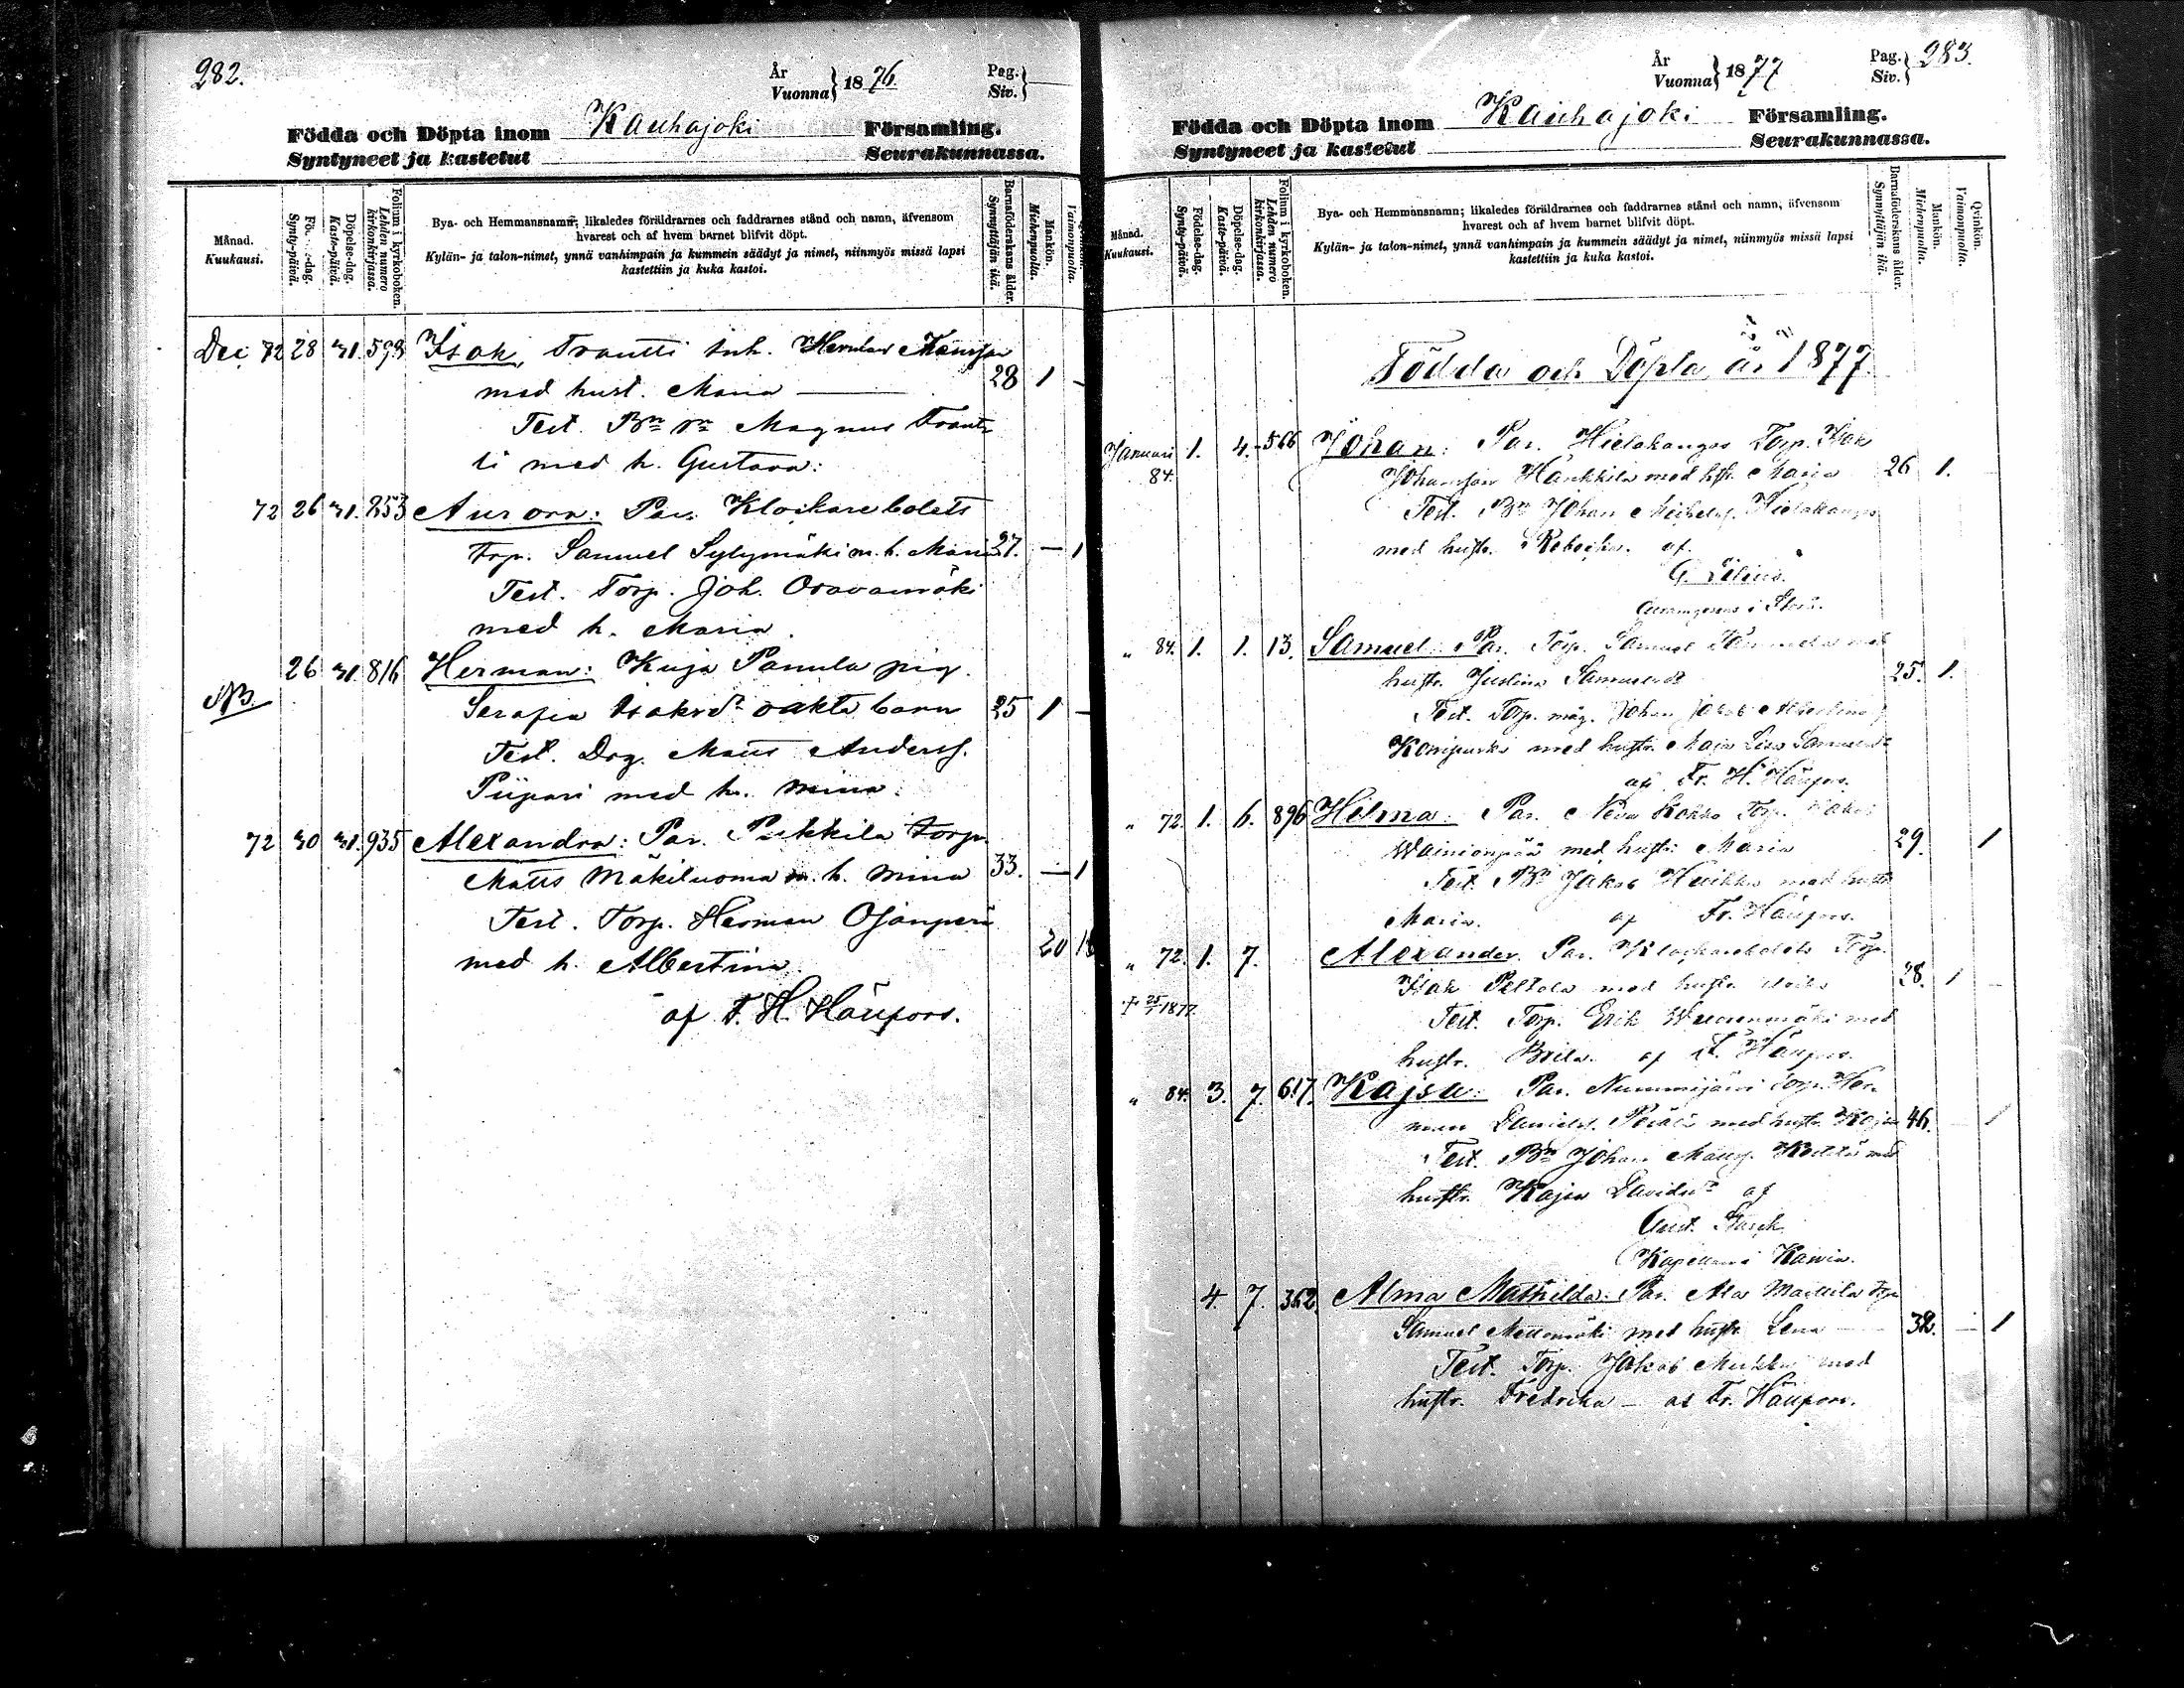 282.
År
Vuonna } 1876
Pag.
Siv. }
Födda och Döpta inom Kauhajoki Församling.
Syntyneet ja kastetut Seurakunnassa.
Månad.
Kuukausi.
Födelse-dag.
Synty-päivä.
Döpelse-dag.
Kaste-päivä.
Folium i kyrkoboken.
Lehden numero kirkonkirjassa.
Bya- och Hemmansnamn; likaledes föräldrarnes och faddrarnes stånd och namn, äfvensom
hvarest och af hvem barnet blifvit döpt.
Kylän- ja talon-nimet, ynnä vanhimpain ja kummein säädyt ja nimet, niinmyös missä lapsi
kastettiin ja kuka kastoi.
Barnaföderskans ålder.
Synnyttäjän ikä.
Mankön.
Miehenpuolia.
Vaimonpuolia.
Dec. 72 28 31. 593 Isak, Trantti inh. Herman
med hust. Maria 28 1 -
Test. Bn Magnus Trant-
ti med h. Gustava:
72 26 31. 853 Aurora: Par. Klockarebolets
Torp. Samuel Sylymäki m. h. Maria 27. - 1
Test. Torp. Joh. Oravamäki
med h. Maria.
26 31. 816 Herman: Kuja Panula pig.
NB. Serafia Isaksdr oäkta barn 25 1 -
Test. Drg. Matts Anderss.
Piipari med h. Mina.
72 30 31. 935 Alexandra: Par. Pukkila torp.
Matts Mäkiluoma m. h. Mina 33. - 1
Test. Torp. Herman Ojanperä
med h. Albertina. 20 18
af F. H. Häyfors.
År
Vuonna } 1877
Pag.
Siv. } 283.
Födda och Döpta inom Kauhajoki Församling.
Syntyneet ja kastetut Seurakunnassa.
Månad.
Kuukausi.
Födelse-dag.
Synty-päivä.
Döpelse-dag.
Kaste-päivä.
Folium i kyrkoboken.
Lehden numero kirkonkirjassa.
Bya- och Hemmansnamn; likaledes föräldrarnes och faddrarnes stånd och namn, äfvensom
hvarest och af hvem barnet blifvit döpt.
Kylän- ja talon-nimet, ynnä vanhimpain ja kummein säädyt ja nimet, niinmyös missä lapsi
kastettiin ja kuka kastoi.
Barnaföderskans ålder.
Synnyttäjän ikä.
Mankön.
Miehenpuolia.
Qvinkön.
Vaimonpuolia.
Födda och Döpta år 1877.
Januari 1. 4. 566 Johan: Par. Hietakangas Torp. Isak
84. Johansson Hankkila med hstr. Maria 26 1.
Test. Bn Johan Michelss. Hietakangas
med hustr. Rebecka. af
G. Lilius.
" 84. 1. 1. 13. Samuel: Par. Torp. Samuel
hustr. Justina Samuelsdr 25. 1.
Test. Torp. måg. Johan Jakob
med hustr. Maja Lisa Samuelsdr
af Fr. H. Häyfors.
" 72. 1. 6. 896 Hilma: Par. Neva Kokko Torp.
Wainionpää med hustr. Maria 29. 1
Test. Bn Jakob Huikko med hustr.
Maria. af Fr. Häyfors.
" 72. 1. 7. Alexander. Par. Klockarebolets Torp.
Isak Peltola med hustr. 28. 1
† 25/1 1877. Test. Torp. Erik Wuorenmäki med
hustr. Brita. af F. Häyfors.
" 84. 3. 7. 617. Kajsa: Par. Nummijärvi Torp. Her-
man Daniels. Perälä med hustr. Kajsa 46. - 1
Test. Bn Johan Matts. med
hustr. Kajsa Davidsdr af
Kapellan i
4. 7. 362. Alma Mathilda: Par. Ala Marttila Torp.
Samuel Mettomäki med hustr. Lena 32. - 1
Test. Torp. Jakob med
hustr. Fredrika - af Fr. Häyfors.